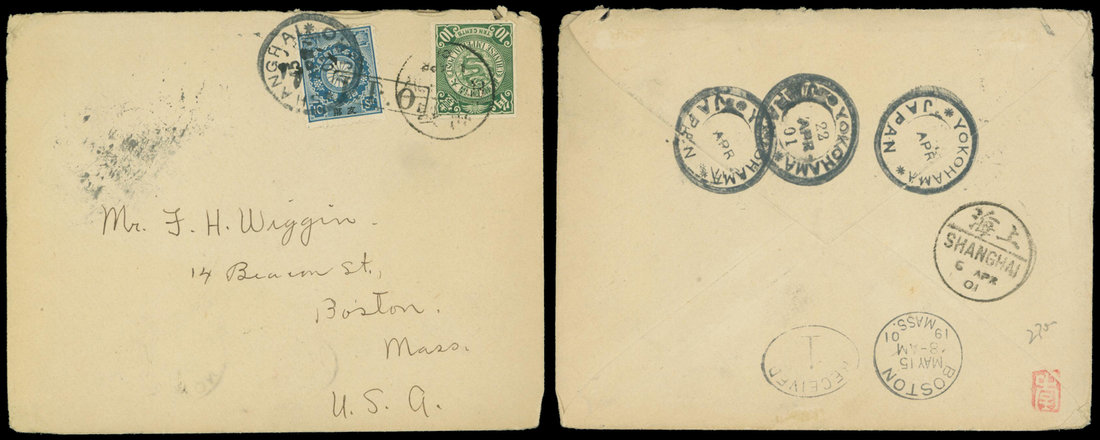 Mr. F. H. Wiggin
14 Beacon St.,
Boston.
Mass.
U. S. A.
10
YOKOHAMA
JAPAN
APR
YOKOHAMA
22
APR
01
YOKOHAMA
JAPAN
APR
海上
SHANGHAI
6 APR
01
BOSTON
MAY 15
8-AM
01
MASS.
19
RECEIVED
1